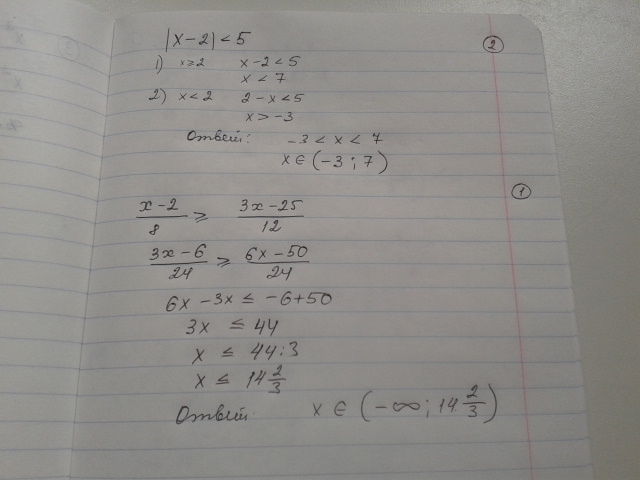 |x-2| < 5
②
1) x≥2 x-2<5
x < 7
2) x<2 2-x<5
x > -3
Ответ: -3 < x < 7
x ∈ (-3; 7)
①
x-2/8 ≥ 3x-25/12
3x-6/24 ≥ 6x-50/24
6x -3x ≤ -6+50
3x ≤ 44
x ≤ 44:3
x ≤ 14 2/3
Ответ: x ∈ (-∞; 14 2/3)